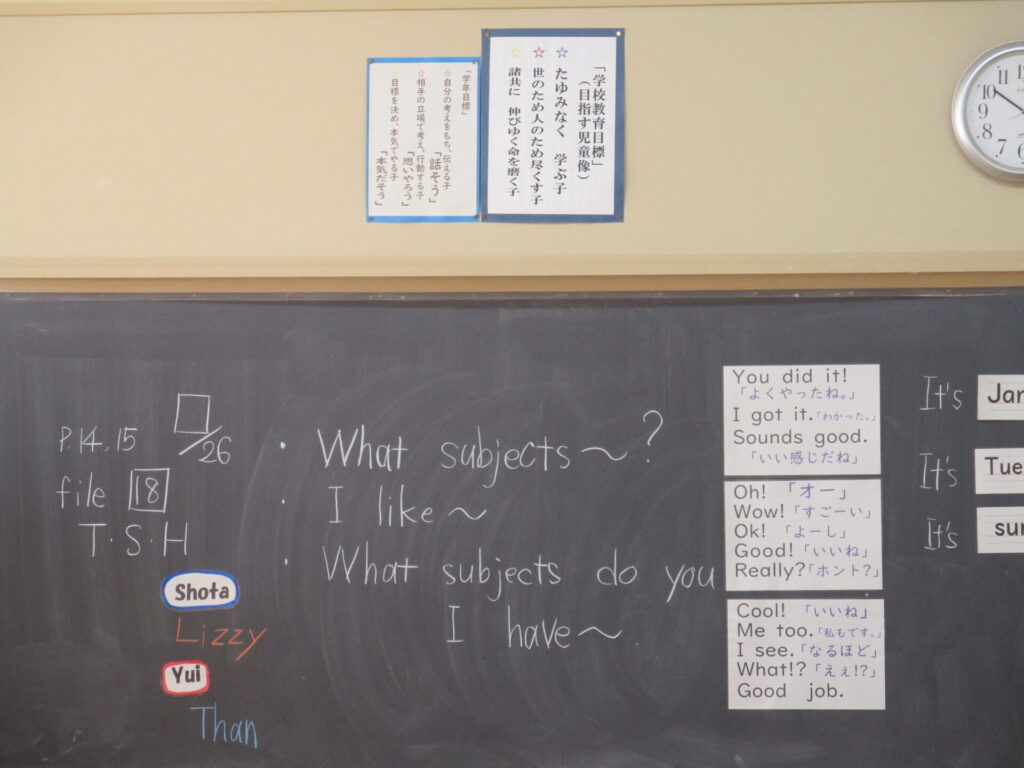 「学校教育目標」
（目指す児童像）
☆ たゆみなく 学ぶ子
☆ 世のため人のため尽くす子
☆ 諸共に 伸びゆく命を磨く子
「学年目標」
☆自分の考えをもち、伝える子
「話そう」
☆相手の立場で考え、行動する子
「思いやろう」
☆目標を決め、本気でやる子
「本気だそう」
11
10
9
8
7
P.14,15
□/26
file 18
T・S・H
Shota
Lizzy
Yui
Than
・What subjects～?
・I like～
・What subjects do you
I have～
You did it!
「よくやったね。」
I got it.「わかった。」
Sounds good.
「いい感じだね」
Oh! 「オー」
Wow!「すごーい」
Ok! 「よーし」
Good!「いいね」
Really?「ホント?」
Cool! 「いいね」
Me too.「私もです。」
I see.「なるほど」
What!?「えぇ!?」
Good job.
It's Jan
It's Tue
It's sun